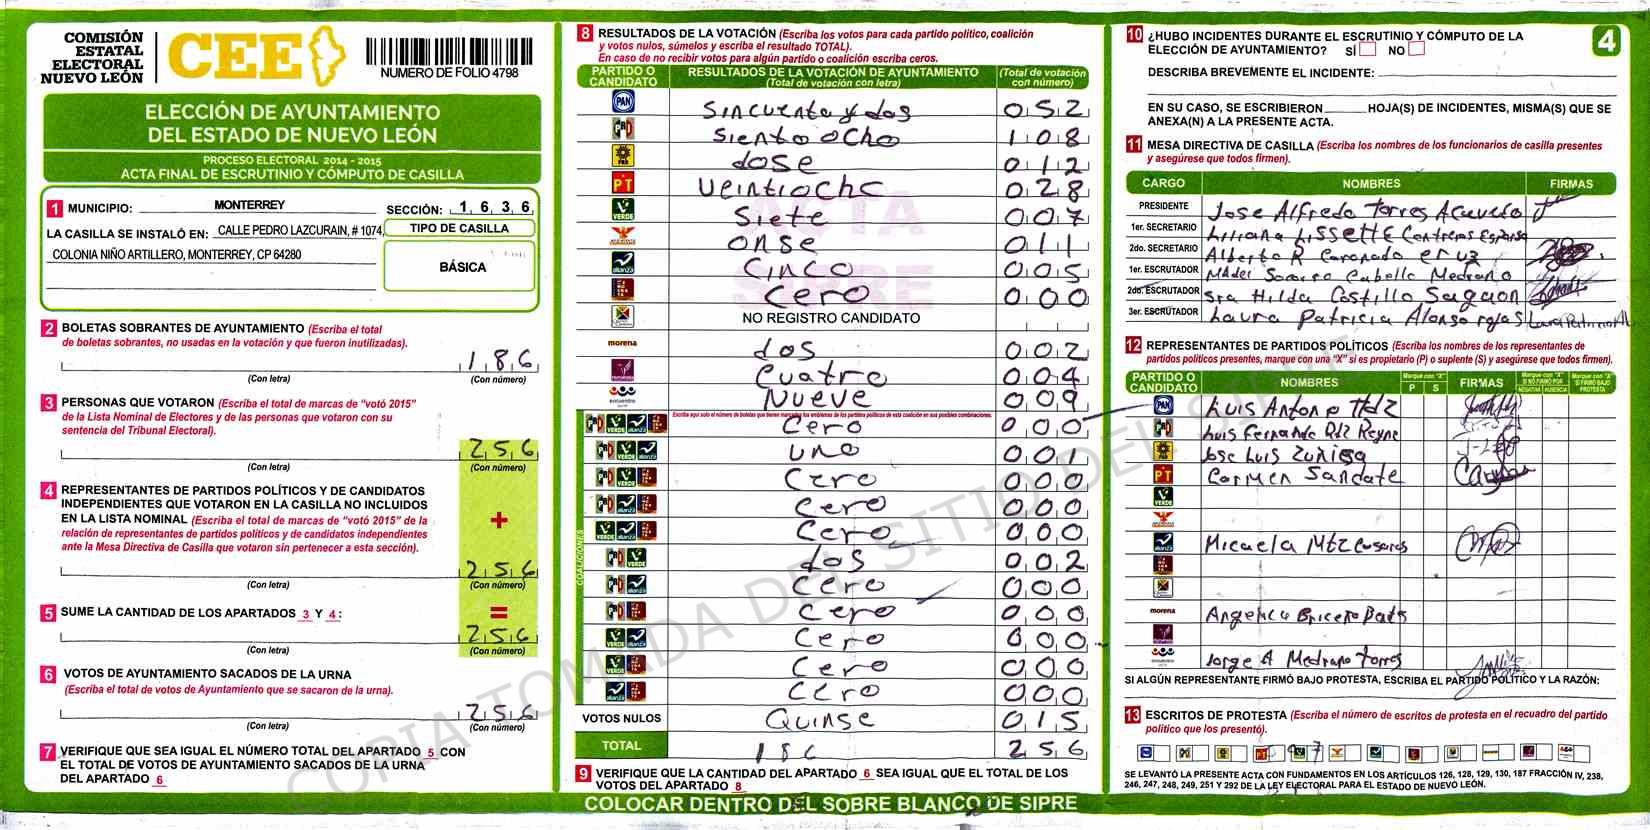 COMISIÓN
ESTATAL
ELECTORAL
NUEVO LEÓN
CEE
NUMERO DE FOLIO 4798
ELECCIÓN DE AYUNTAMIENTO
DEL ESTADO DE NUEVO LEÓN
PROCESO ELECTORAL 2014 - 2015
ACTA FINAL DE ESCRUTINIO Y CÓMPUTO DE CASILLA
1 MUNICIPIO: MONTERREY SECCIÓN: 1 6 3 6
LA CASILLA SE INSTALÓ EN: CALLE PEDRO LAZCURAIN, # 1074, TIPO DE CASILLA
COLONIA NIÑO ARTILLERO, MONTERREY, CP 64280
BÁSICA
2 BOLETAS SOBRANTES DE AYUNTAMIENTO (Escriba el total
de boletas sobrantes, no usadas en la votación y que fueron inutilizadas).
186
(Con letra) (Con número)
3 PERSONAS QUE VOTARON (Escriba el total de marcas de “votó 2015”
de la Lista Nominal de Electores y de las personas que votaron con su
sentencia del Tribunal Electoral).
256
(Con letra) (Con número)
4 REPRESENTANTES DE PARTIDOS POLÍTICOS Y DE CANDIDATOS
INDEPENDIENTES QUE VOTARON EN LA CASILLA NO INCLUIDOS
EN LA LISTA NOMINAL (Escriba el total de marcas de “votó 2015” de la
relación de representantes de partidos políticos y de candidatos independientes
ante la Mesa Directiva de Casilla que votaron sin pertenecer a esta sección).
+
256
(Con letra) (Con número)
=
5 SUME LA CANTIDAD DE LOS APARTADOS 3 Y 4:
256
(Con letra) (Con número)
6 VOTOS DE AYUNTAMIENTO SACADOS DE LA URNA
(Escriba el total de votos de Ayuntamiento que se sacaron de la urna).
256
(Con letra) (Con número)
7 VERIFIQUE QUE SEA IGUAL EL NÚMERO TOTAL DEL APARTADO 5 CON
EL TOTAL DE VOTOS DE AYUNTAMIENTO SACADOS DE LA URNA
DEL APARTADO 6
8 RESULTADOS DE LA VOTACIÓN (Escriba los votos para cada partido político, coalición
y votos nulos, súmelos y escriba el resultado TOTAL).
En caso de no recibir votos para algún partido o coalición escriba ceros.
PARTIDO O CANDIDATO RESULTADOS DE LA VOTACIÓN DE AYUNTAMIENTO (Total de votación con letra) (Total de votación con número)
PAN Sincuenta y dos 052
PRD Siento ocho 108
PRD dose 012
PT Veintiocho 028
VERDE Siete 007
onse 011
alianza Cinco 005
Cero 000
NO REGISTRO CANDIDATO
morena dos 002
Cuatro 004
Nueve 009
Escriba aquí solo el número de boletas que tienen marcados los emblemas de los partidos políticos de esta coalición en sus posibles combinaciones.
COALICIONES
Cero 000
uno 001
Cero 000
Cero 000
Cero 000
dos 002
cero 000
cero 000
Cero 000
Cero 000
Cero 000
VOTOS NULOS Quinse 015
TOTAL 186 256
9 VERIFIQUE QUE LA CANTIDAD DEL APARTADO 6 SEA IGUAL QUE EL TOTAL DE LOS
VOTOS DEL APARTADO 8
COLOCAR DENTRO DEL SOBRE BLANCO DE SIPRE
ACTA
SIPRE
COPIA TOMADA DEL SITIO DEL SIPRE
10 ¿HUBO INCIDENTES DURANTE EL ESCRUTINIO Y CÓMPUTO DE LA
ELECCIÓN DE AYUNTAMIENTO? SÍ NO
4
DESCRIBA BREVEMENTE EL INCIDENTE:
EN SU CASO, SE ESCRIBIERON HOJA(S) DE INCIDENTES, MISMA(S) QUE SE
ANEXA(N) A LA PRESENTE ACTA.
11 MESA DIRECTIVA DE CASILLA (Escriba los nombres de los funcionarios de casilla presentes
y asegúrese que todos firmen).
CARGO NOMBRES FIRMAS
PRESIDENTE Jose Alfredo Torres Acevedo
1er. SECRETARIO Liliana Lissette Contreras Esparsa
2do. SECRETARIO Alberto R Coronado cruz
1er. ESCRUTADOR Ma del Socorro Cabello Medrano
2do. ESCRUTADOR Sra Hilda Costilla Sagaon
3er. ESCRUTADOR Laura Patricia Alonso rojas
12 REPRESENTANTES DE PARTIDOS POLÍTICOS (Escriba los nombres de los representantes de
partidos políticos presentes, marque con una “X” si es propietario (P) o suplente (S) y asegúrese que todos firmen).
PARTIDO O CANDIDATO NOMBRES Marque con “X” P S FIRMAS Marque con “X” SI NO FIRMÓ POR NEGATIVA AUSENCIA Marque con “X” SI FIRMÓ BAJO PROTESTA
PAN Luis Antonio Hdz
Luis Fernando Rdz Reyna
PRD Jose Luis Zuñiga
PT Carmen Sandate
VERDE
alianza Micaela Mtz Casares
morena Angelica Briceño
Jorge A Medrano Torres
SI ALGÚN REPRESENTANTE FIRMÓ BAJO PROTESTA, ESCRIBA EL PARTIDO POLÍTICO Y LA RAZÓN:
13 ESCRITOS DE PROTESTA (Escriba el número de escritos de protesta en el recuadro del partido
político que los presentó).
SE LEVANTÓ LA PRESENTE ACTA CON FUNDAMENTOS EN LOS ARTÍCULOS 126, 128, 129, 130, 187 FRACCIÓN IV, 238,
246, 247, 248, 249, 251 Y 292 DE LA LEY ELECTORAL PARA EL ESTADO DE NUEVO LEÓN.